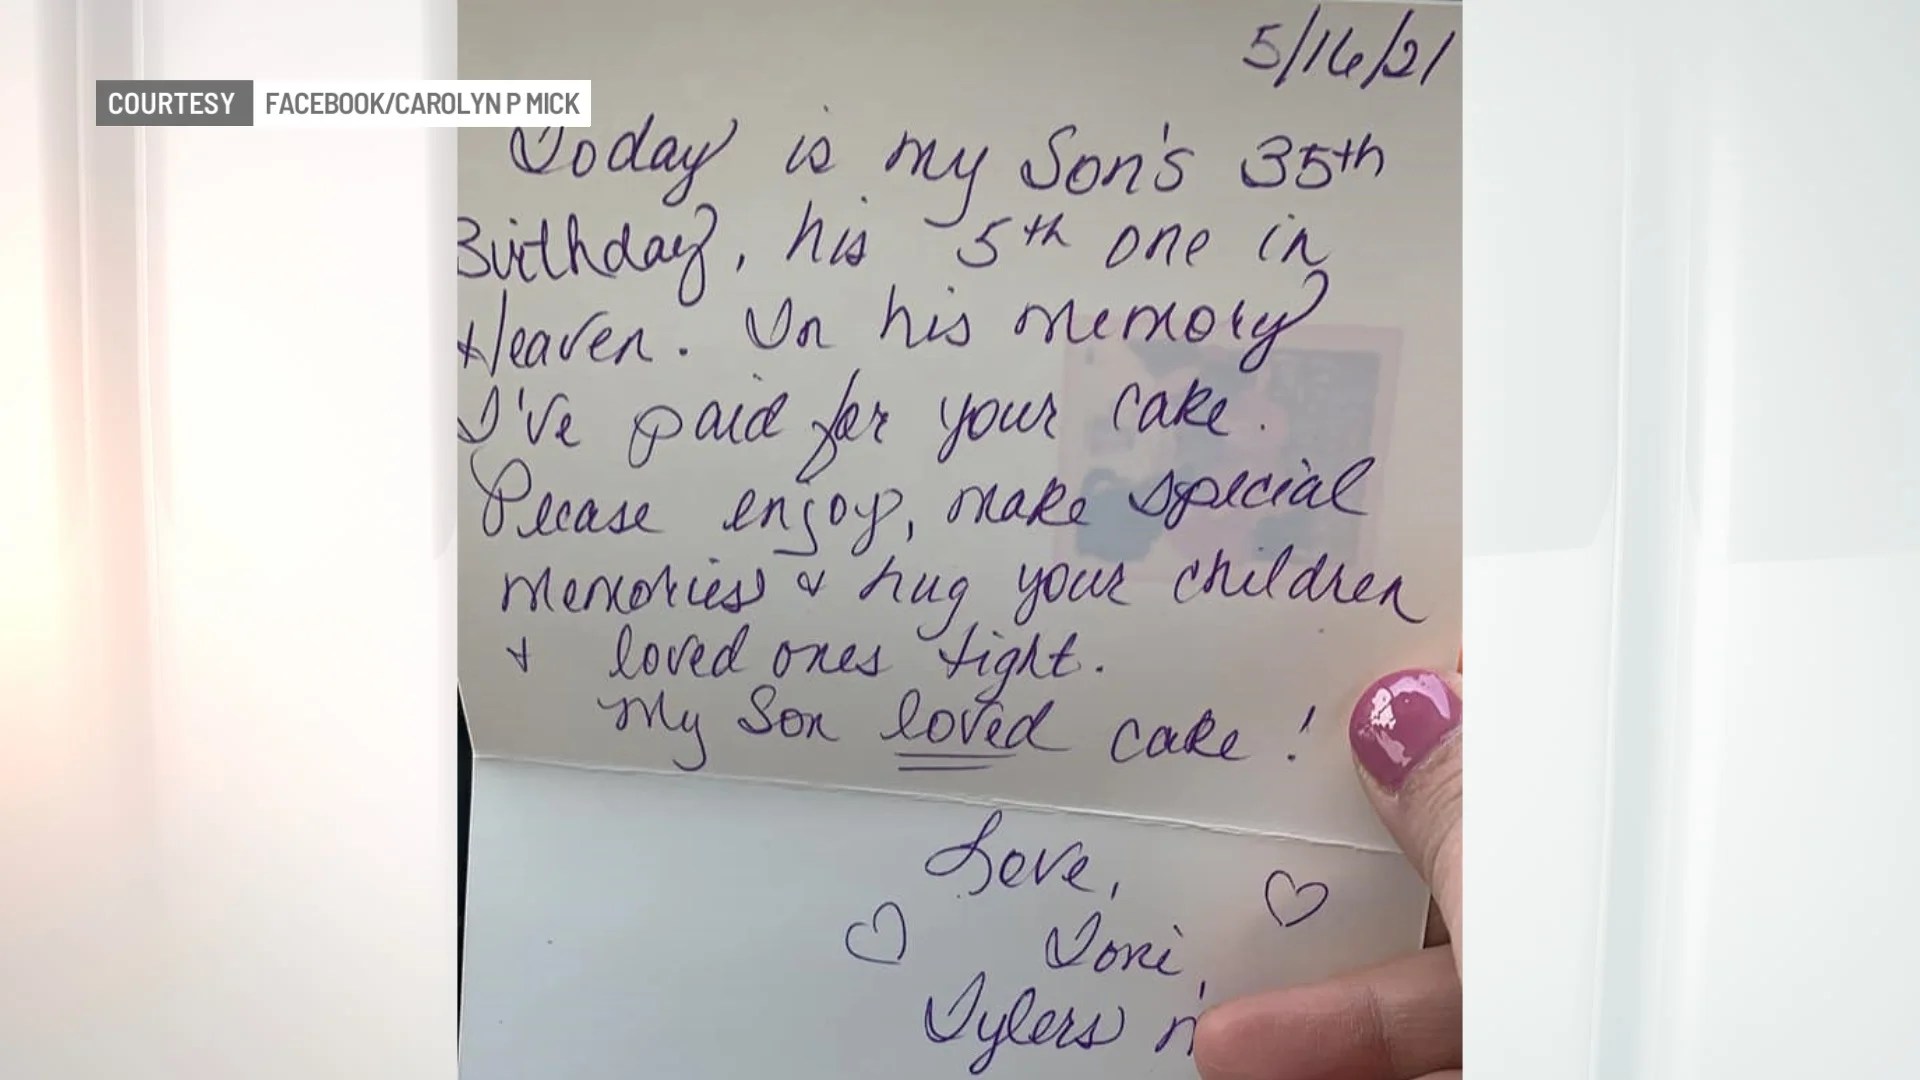 5/16/21
COURTESY FACEBOOK/CAROLYN P MICK
Today is my Son's 35th
Birthday, his 5th one in
Heaven. In his memory
I've paid for your cake.
Please enjoy, make special
memories & hug your children
& loved ones tight.
My Son loved cake!
Love,
Toni,
Tylers